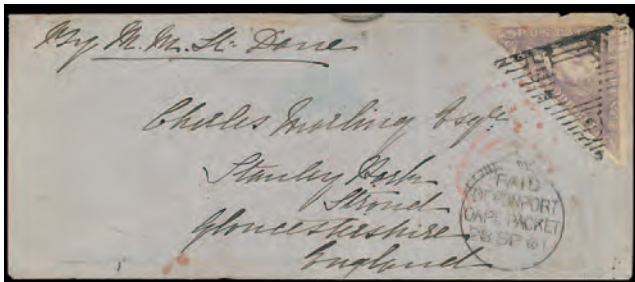 By M. M. St. Dane
Charles Morling Esqre
Stanley
Stroud
Gloucestershire
England
PAID
DEVONPORT
CAPE PACKET
28 SP 61